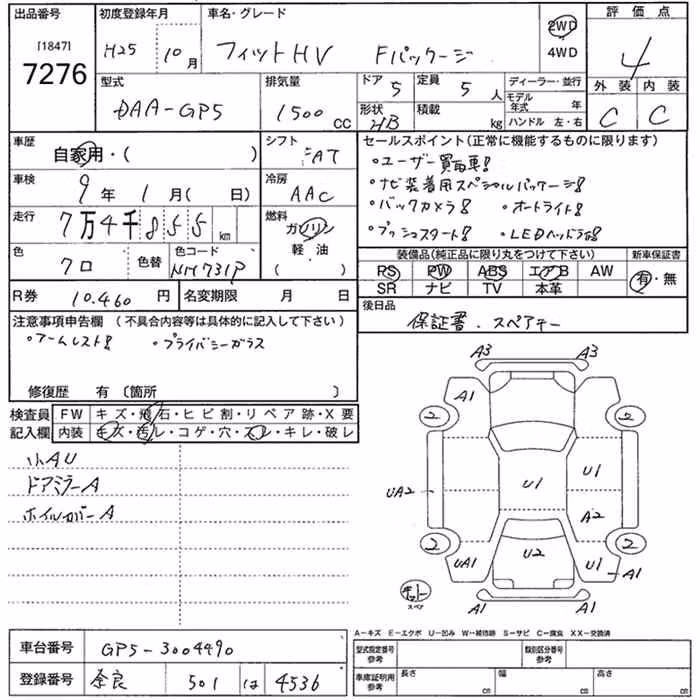 出品番号 初度登録年月 車名・グレード 2WD 評価点
[1847] H25 10月 フィットHV Fパッケージ 4WD 4
7276
型式 排気量 ドア 5 定員 5 人 ディーラー・並行 外装 内装
DAA-GP5 1500 CC 形状 HB 積載 kg モデル年式 年 C C
ハンドル 左・右
車歴 自家用・( ) シフト AT セールスポイント(正常に機能するものに限ります)
・ユーザー買取車!
車検 9年 1月( 日) 冷房 AAC ・ナビ装着用スペシャルパッケージ!
走行 7万4千855 km 燃料 ガソリン ・バックカメラ! ・オートライト!
軽・油 ・プッシュスタート! ・LEDヘッドライト!
( )
色 クロ 色替 色コード NH731P 装備品(純正品に限り丸をつけて下さい) 新車保証書
PS PW ABS エアB AW 有・無
SR ナビ TV 本革
R券 10.460 円 名変期限 月 日 後日品
保証書、スペアキー
注意事項申告欄 (不具合内容等は具体的に記入して下さい)
・アームレスト! ・プライバシーガラス
修復歴 有〔箇所 〕
検査員 FW キズ・飛石・ヒビ割・リペア跡・X要
記入欄 内装 キズ・汚レ・コゲ・穴・スレ・キレ・破レ
小AU
ドアミラーA
ホイルカバーA
A3 A3
A1
2 2
U1 U1
UA2
A2
2 2
UA1 U2 U1
A1 A1
キット
スペア
A-キズ E-エクボ U-凹み W-補修跡 S-サビ C-腐食 XX-交換済
車台番号 GP5-3004490 型式指定番号 参考 類別区分番号 参考
登録番号 奈良 501 は 4536 車庫証明用 参考 長さ cm 幅 cm 高さ cm